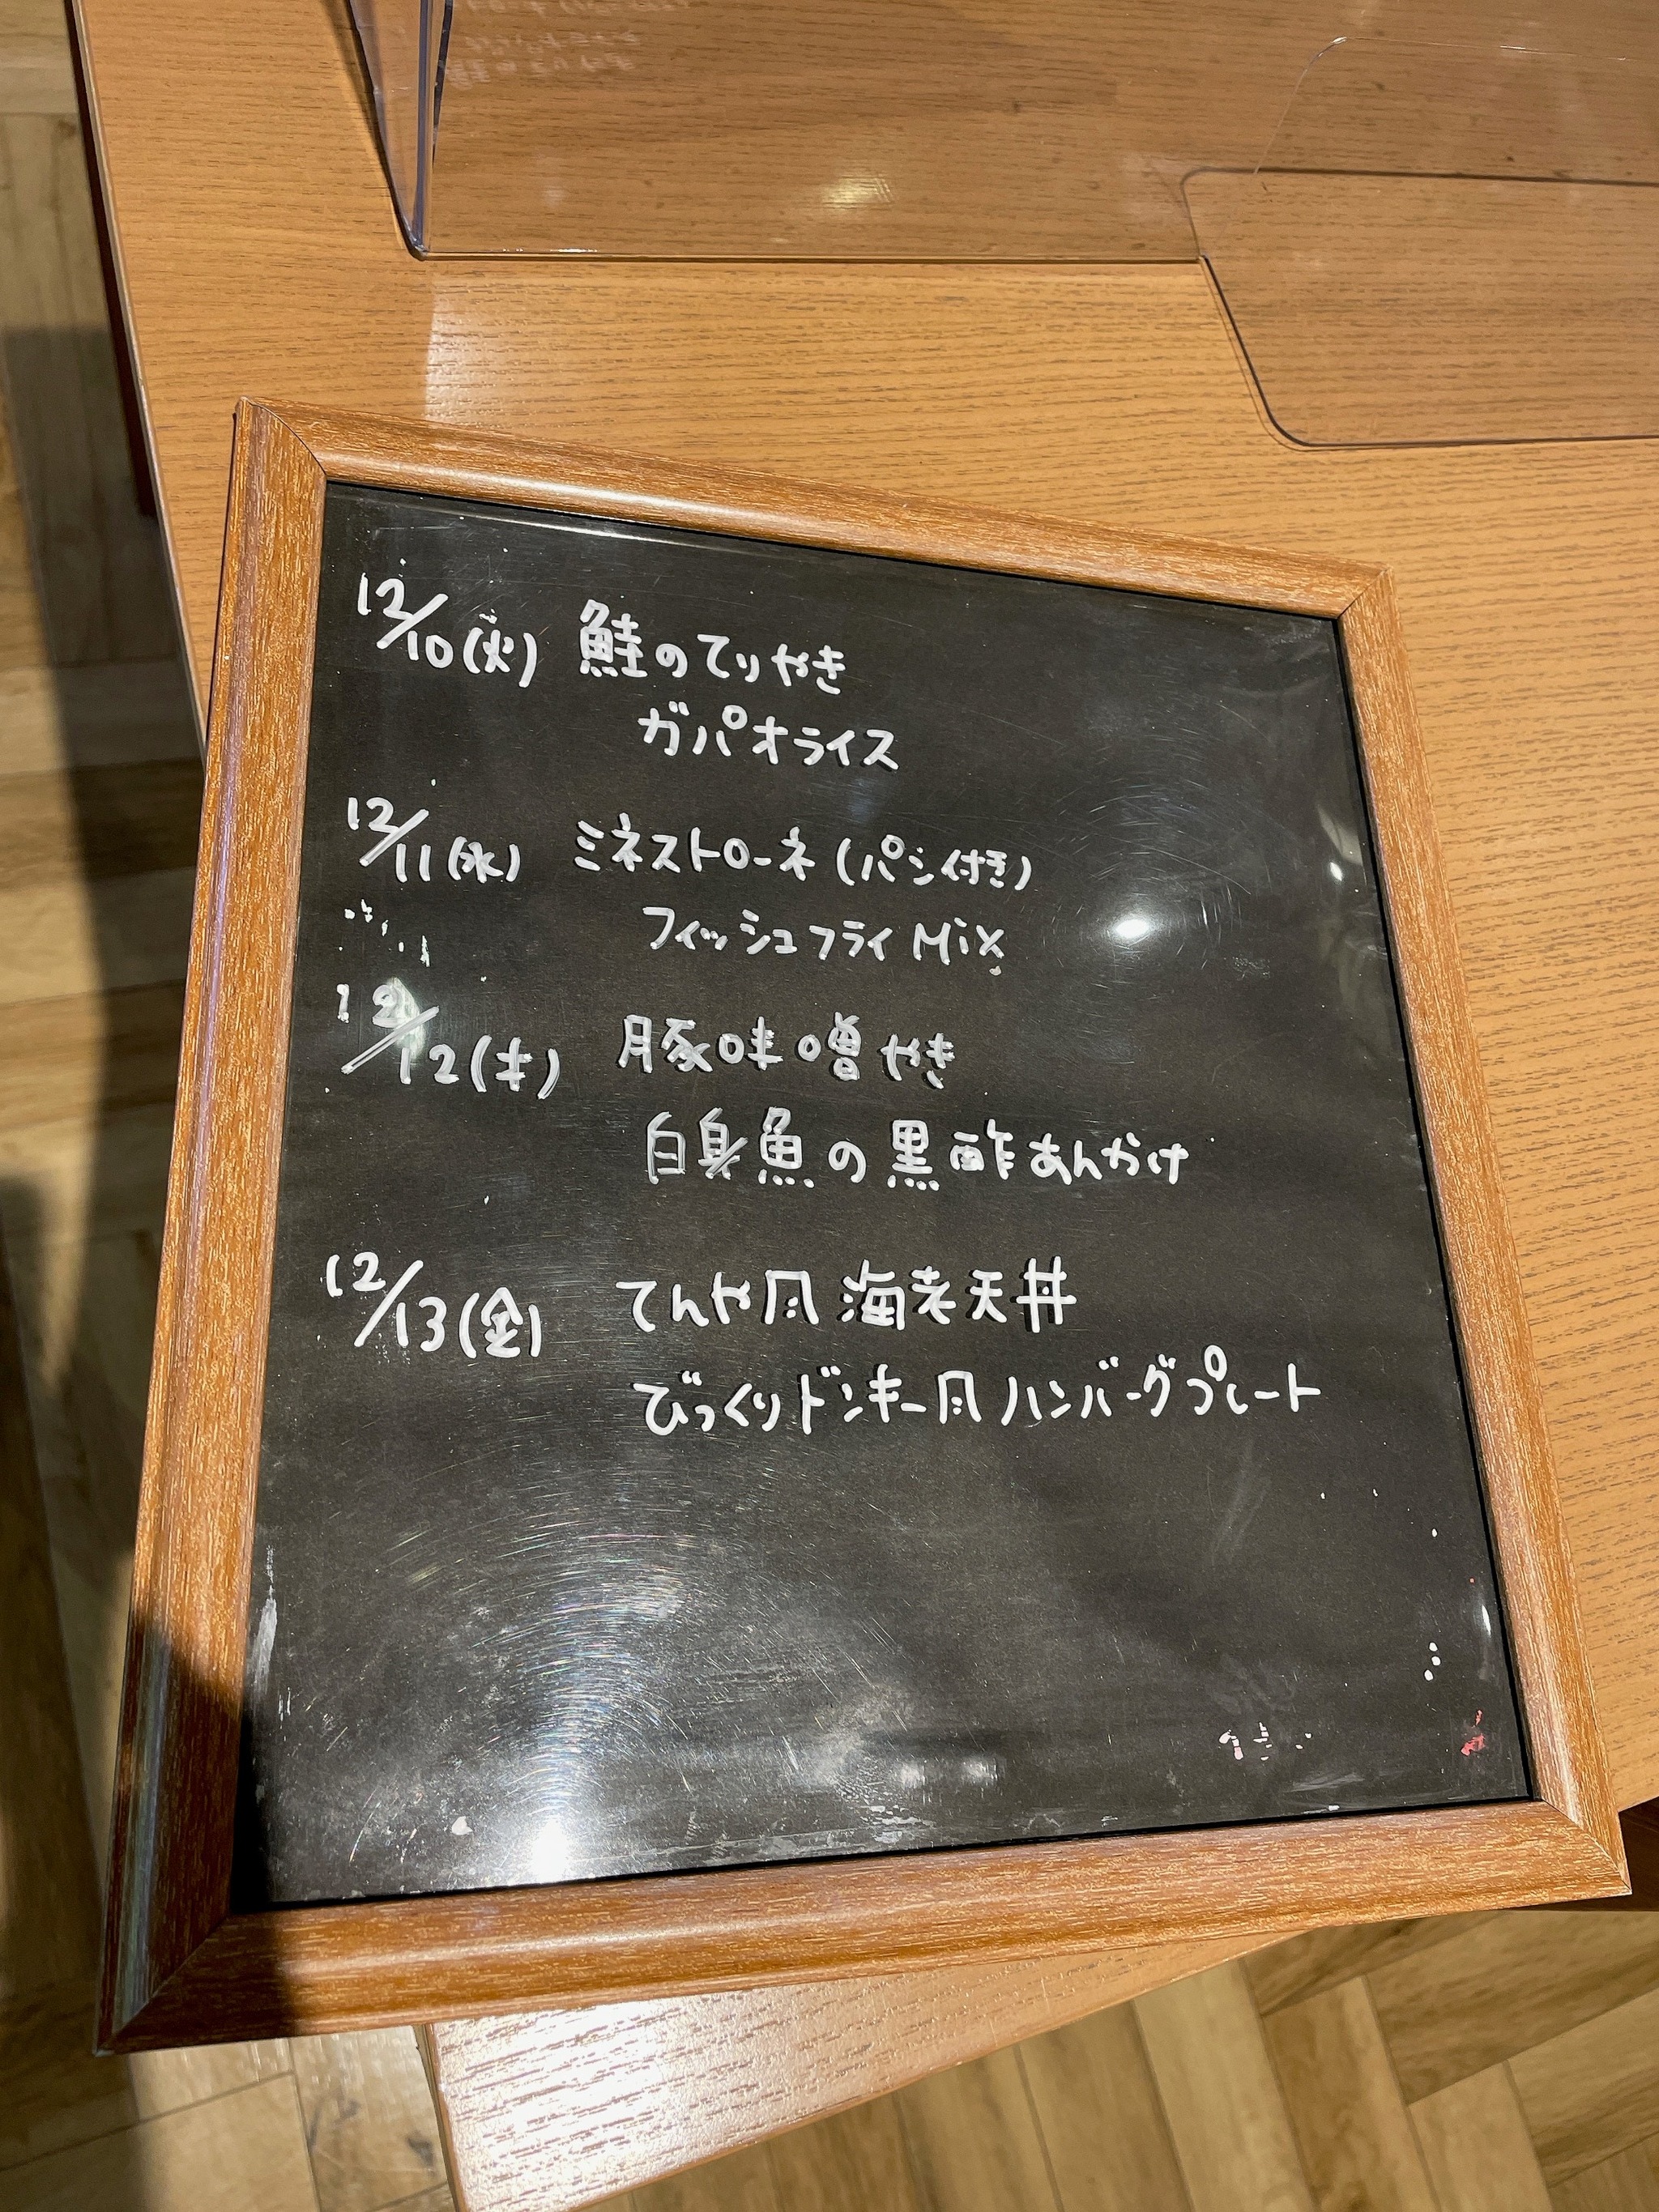 12/10(火) 鮭のてりやき
ガパオライス
12/11(水) ミネストローネ(パン付き)
フィッシュフライMix
12/12(木) 豚味噌やき
白身魚の黒酢あんかけ
12/13(金) てんや風海老天丼
びっくりドンキー風ハンバーグプレート